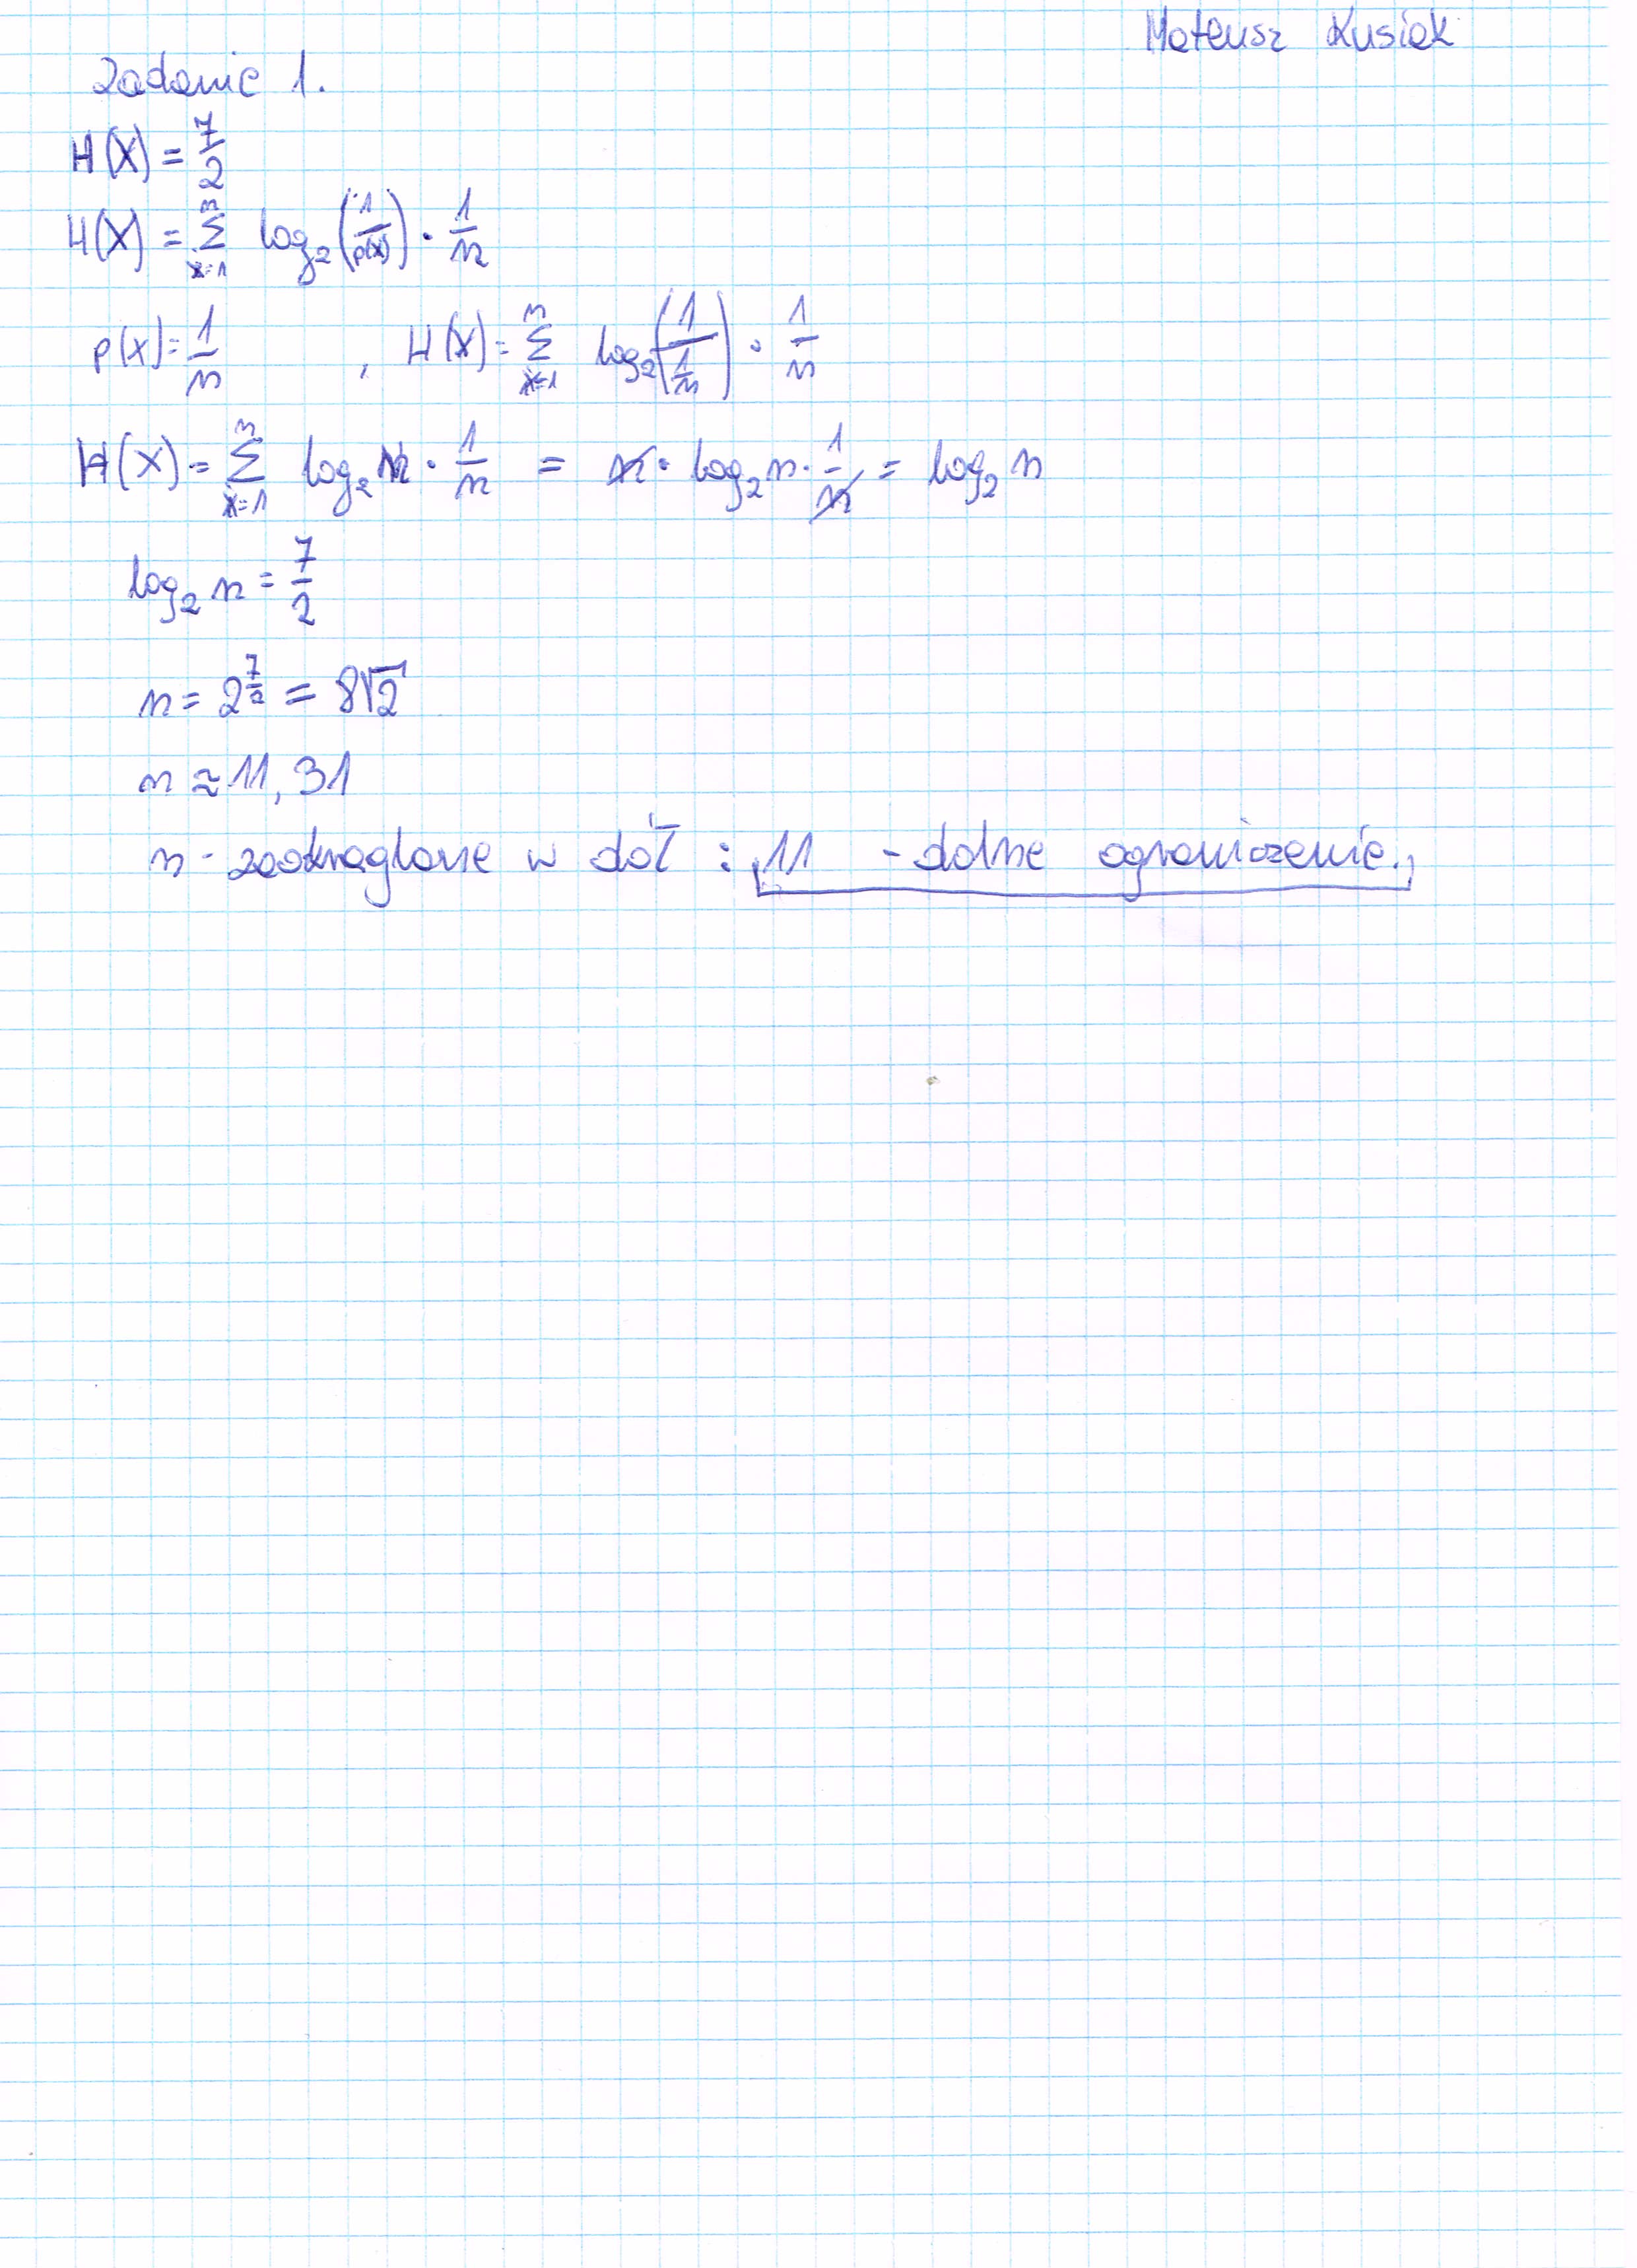 Mateusz Kusiak
Zadanie 1.
H(X) = 7/2
H(X) = Σ_{x=1}^{n} log₂(1/p(x)) · 1/n
p(x) = 1/n , H(X) = Σ_{x=1}^{n} log₂(1/(1/n)) · 1/n
H(X) = Σ_{x=1}^{n} log₂ n · 1/n = n · log₂ n · 1/n = log₂ n
log₂ n = 7/2
n = 2^{7/2} = 8√2
n ≈ 11,31
n - zaokrąglone w dół : 11 - dolne ograniczenie.